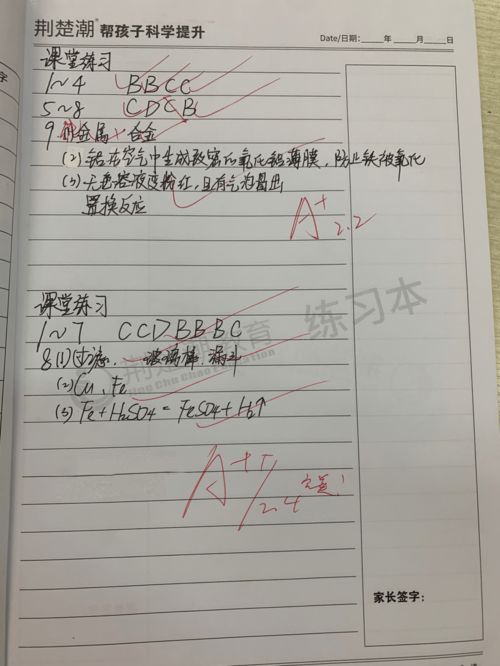 荆楚潮® 帮孩子科学提升
Date/日期:____年____月____日
课堂练习
1~4 BBCC
5~8 CDCB
9 金属 合金
(2) 铝在空气中生成致密的氧化铝薄膜,防止铁被氧化
(3) 无色溶液变粉红,且有气泡冒出
置换反应
A+
2.2
课堂练习
1~7 CCDBBBC
8(1)过滤, 玻璃棒 漏斗
(2) Cu、Fe
(3) Fe+H2SO4=FeSO4+H2↑
A++
2.4
荆楚潮教育 练习本
Jing Chu chao Education
家长签字: